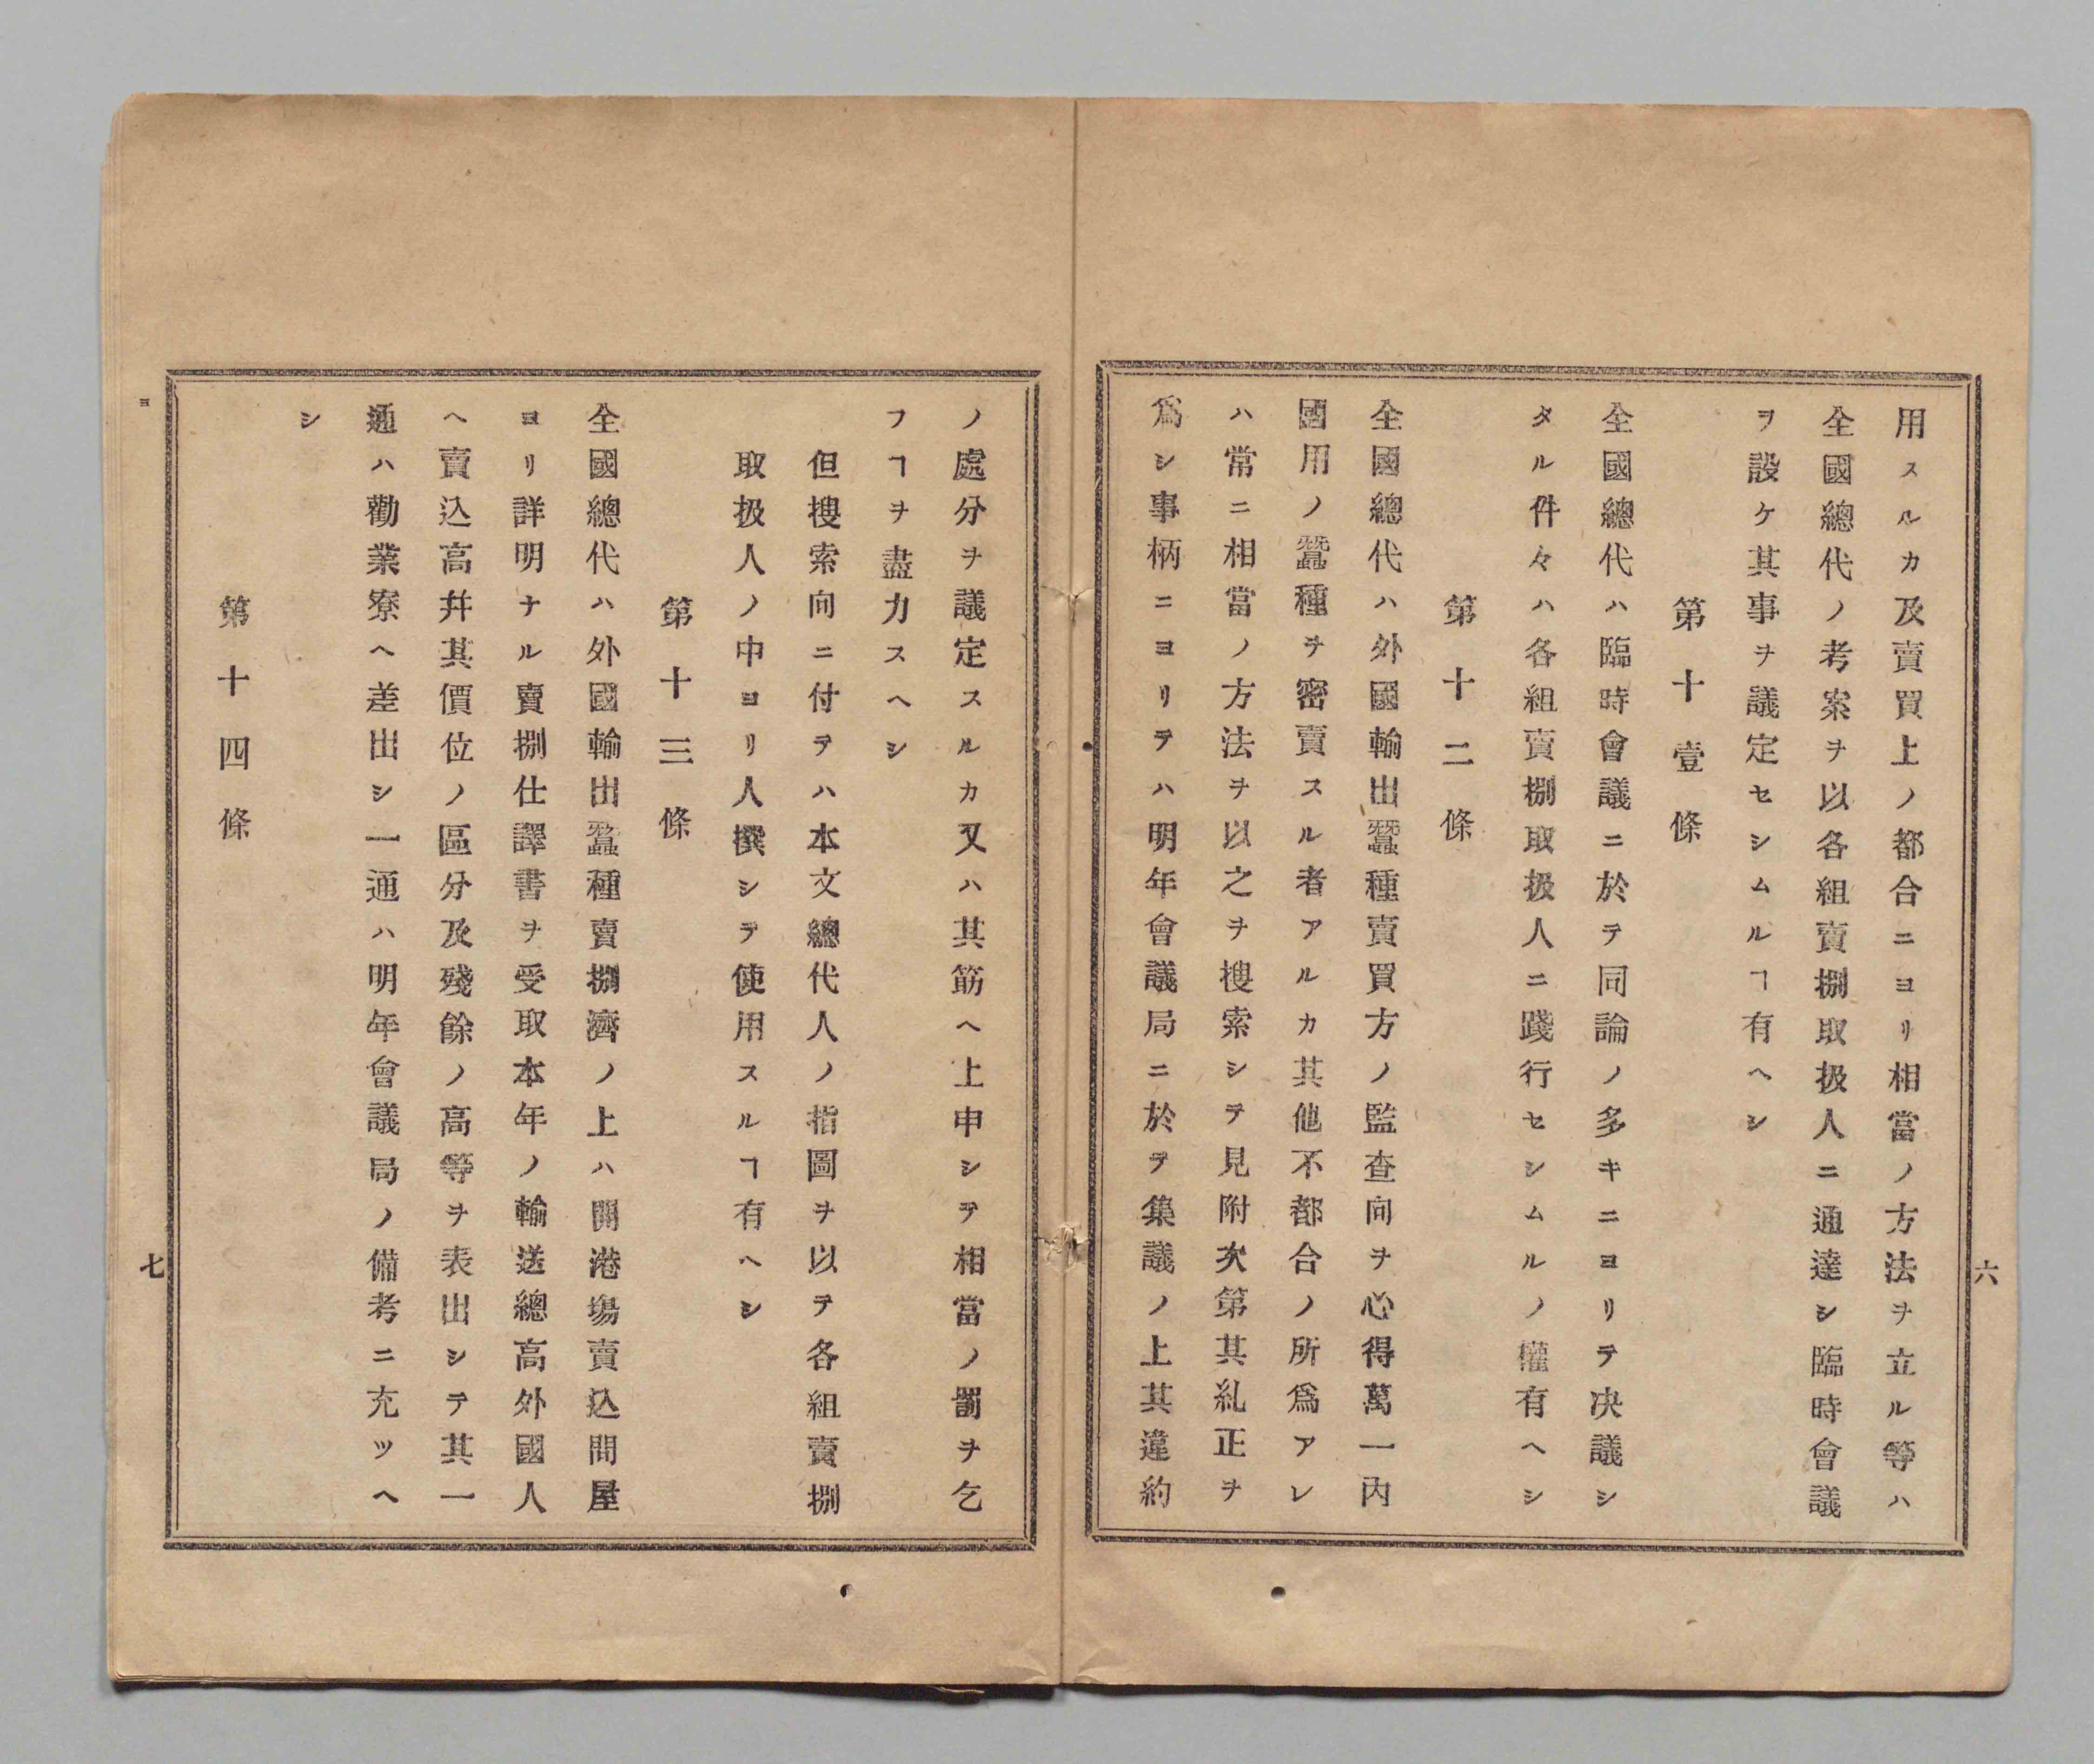 用スルカ及賣買上ノ都合ニヨリ相當ノ方法ヲ立ル等ハ
全國總代ノ考案ヲ以各組賣捌取扱人ニ通達シ臨時會議
ヲ設ケ其事ヲ議定セシムルヿ有ヘシ
第十壹條
全國總代ハ臨時會議ニ於テ同論ノ多キニヨリテ决議シ
タル件々ハ各組賣捌取扱人ニ踐行セシムルノ權有ヘシ
第十二條
全國總代ハ外國輸出蠶種賣買方ノ監查向ヲ心得萬一內
國用ノ蠶種ヲ密賣スル者アルカ其他不都合ノ所爲アレ
ハ常ニ相當ノ方法ヲ以之ヲ搜索シテ見附次第其糺正ヲ
爲シ事柄ニヨリテハ明年會議局ニ於テ集議ノ上其違約
六
ノ處分ヲ議定スルカ又ハ其筋ヘ上申シテ相當ノ罰ヲ乞
フヿヲ盡力スヘシ
但搜索向ニ付テハ本文總代人ノ指圖ヲ以テ各組賣捌
取扱人ノ中ヨリ人撰シテ使用スルヿ有ヘシ
第十三條
全國總代ハ外國輸出蠶種賣捌濟ノ上ハ開港塲賣込問屋
ヨリ詳明ナル賣捌仕譯書ヲ受取本年ノ輸送總高外國人
ヘ賣込高幷其價位ノ區分及殘餘ノ高等ヲ表出シテ其一
通ハ勸業寮ヘ差出シ一通ハ明年會議局ノ備考ニ充ツヘ
シ
第十四條
ヨ
七